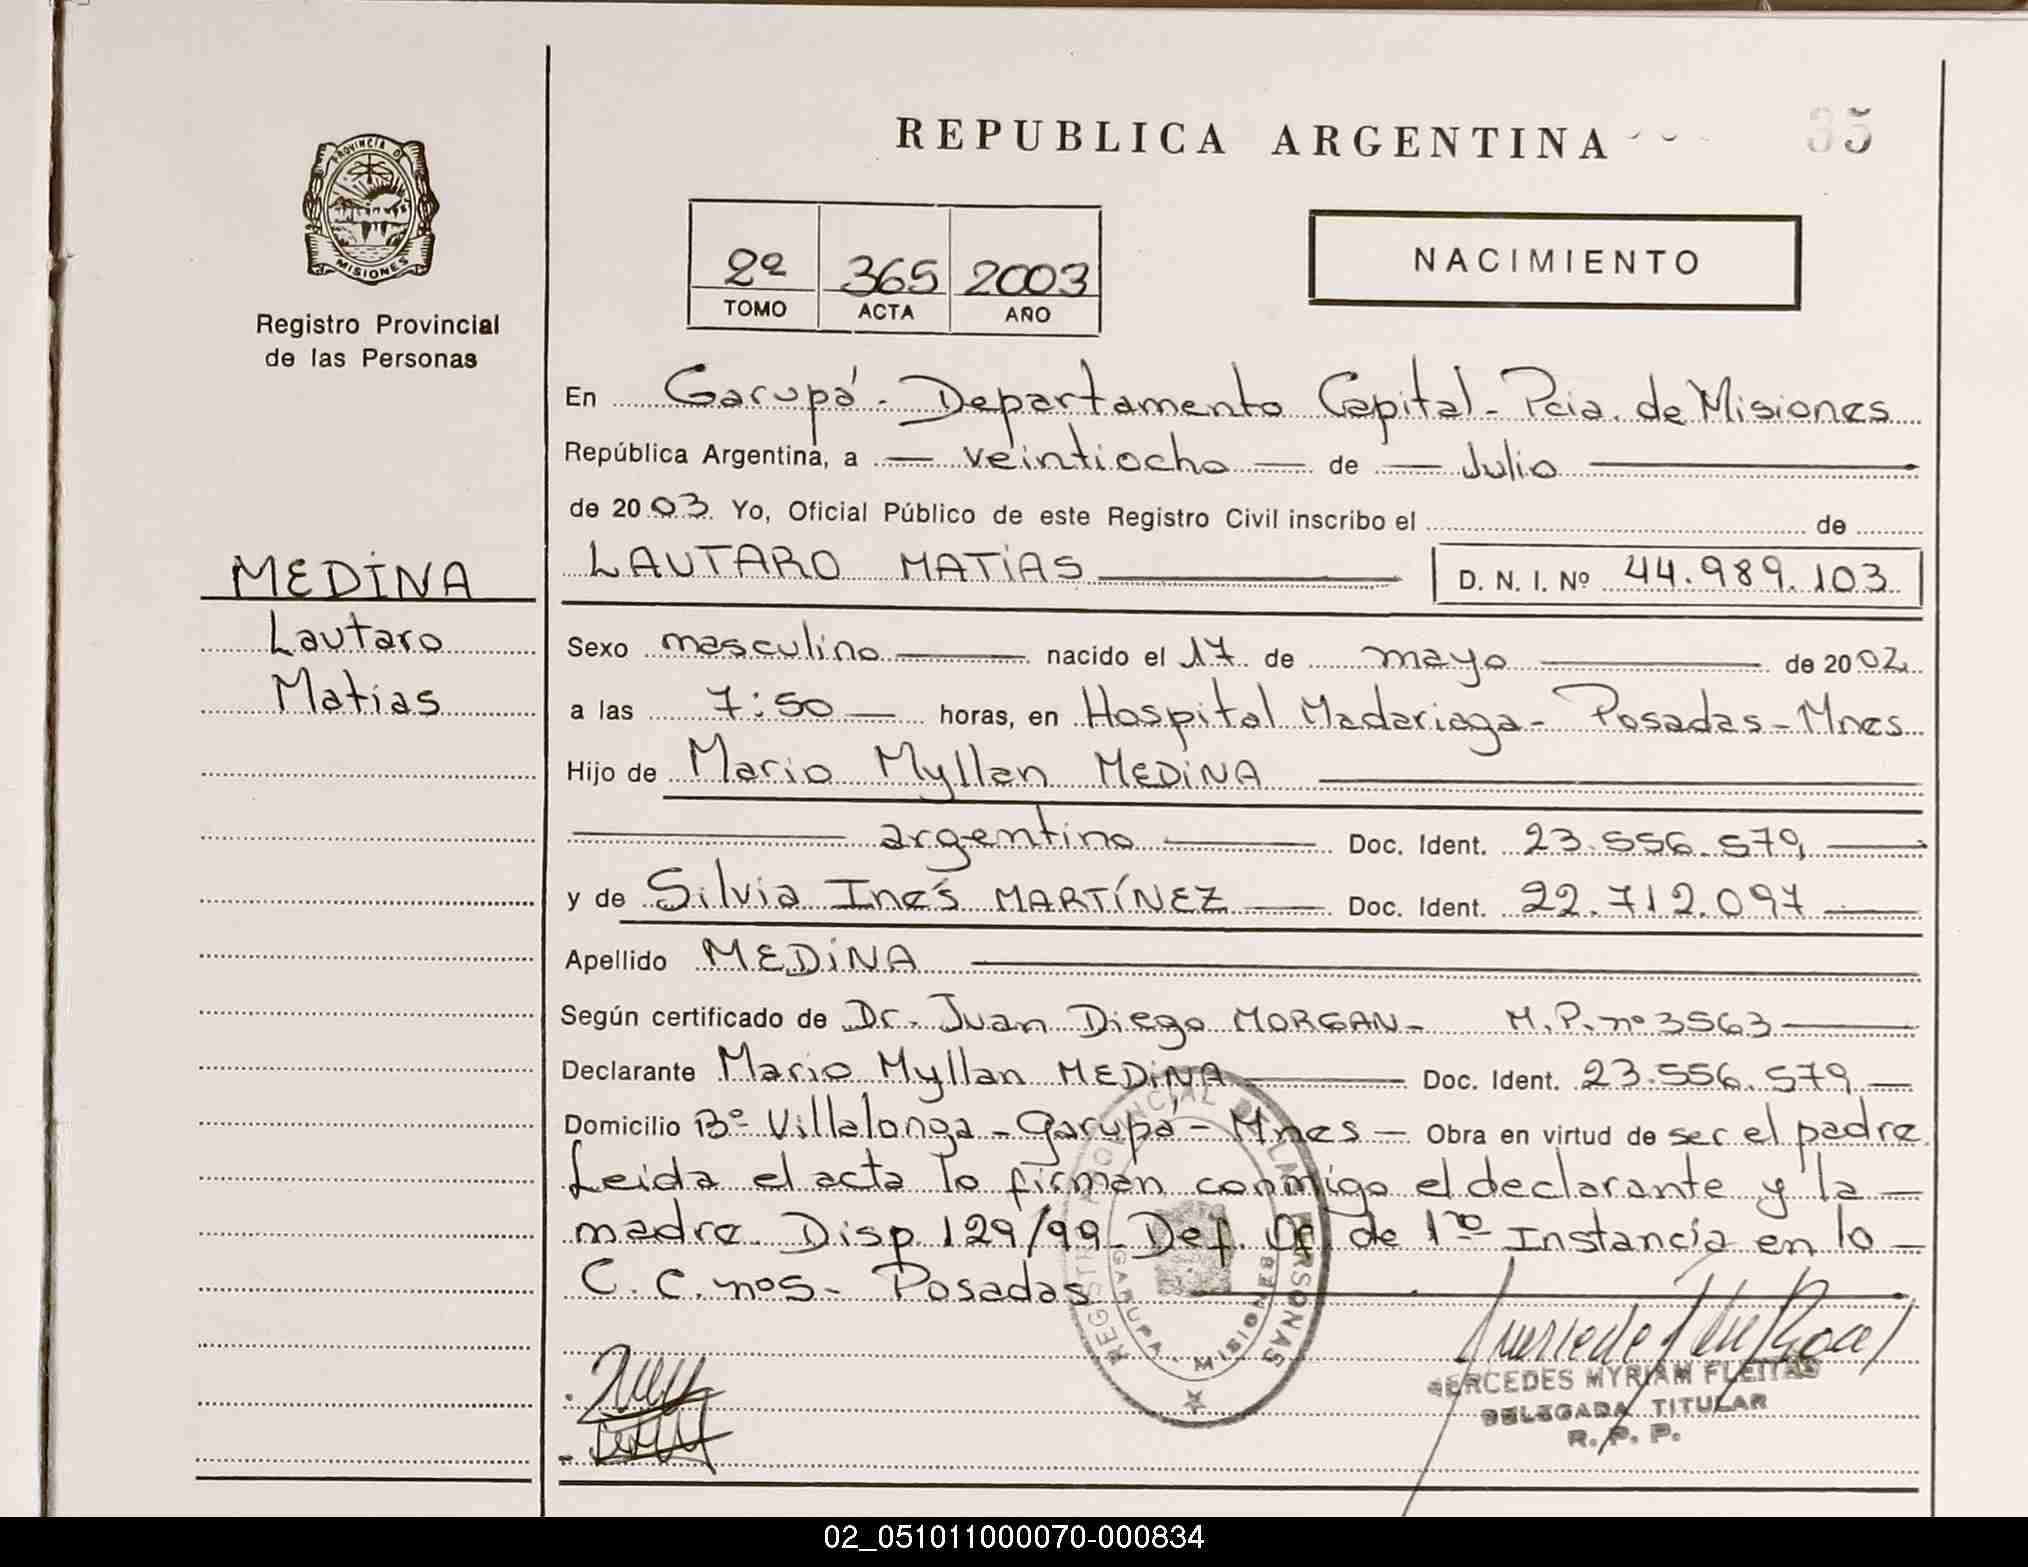 REPUBLICA ARGENTINA
35
PROVINCIA DE
MISIONES
Registro Provincial
de las Personas
2º 365 2003
TOMO ACTA AÑO
NACIMIENTO
En Garupá - Departamento Capital - Pcia. de Misiones
República Argentina, a — veintiocho — de — Julio —
de 2003. Yo, Oficial Público de este Registro Civil inscribo el de
MEDINA
Lautaro
Matias
LAUTARO MATIAS — D. N. I. Nº 44.989.103
Sexo masculino — nacido el 17 de mayo — de 2002
a las 7:50 — horas, en Hospital Madariaga - Posadas - Mnes
Hijo de Mario Myllan MEDINA —
— argentino — Doc. Ident. 23.556.579, —
y de Silvia Inés MARTÍNEZ — Doc. Ident. 22.712.097 —
Apellido MEDINA —
Según certificado de Dr. Juan Diego MORGAN - M. P. nº 3563 —
Declarante Mario Myllan MEDINA — Doc. Ident. 23.556.579 —
Domicilio Bº Villalonga - Garupá - Mnes — Obra en virtud de ser el padre.
Leida el acta lo firman conmigo el declarante y la —
madre. Disp 129/99 Def. Of. de 1ra Instancia en lo —
C. C. nº5 - Posadas —
REGISTRO PROVINCIAL DE LAS PERSONAS
GARUPA - MISIONES
MERCEDES MYRIAM FLEITAS
DELEGADA TITULAR
R. P. P.
02_051011000070-000834